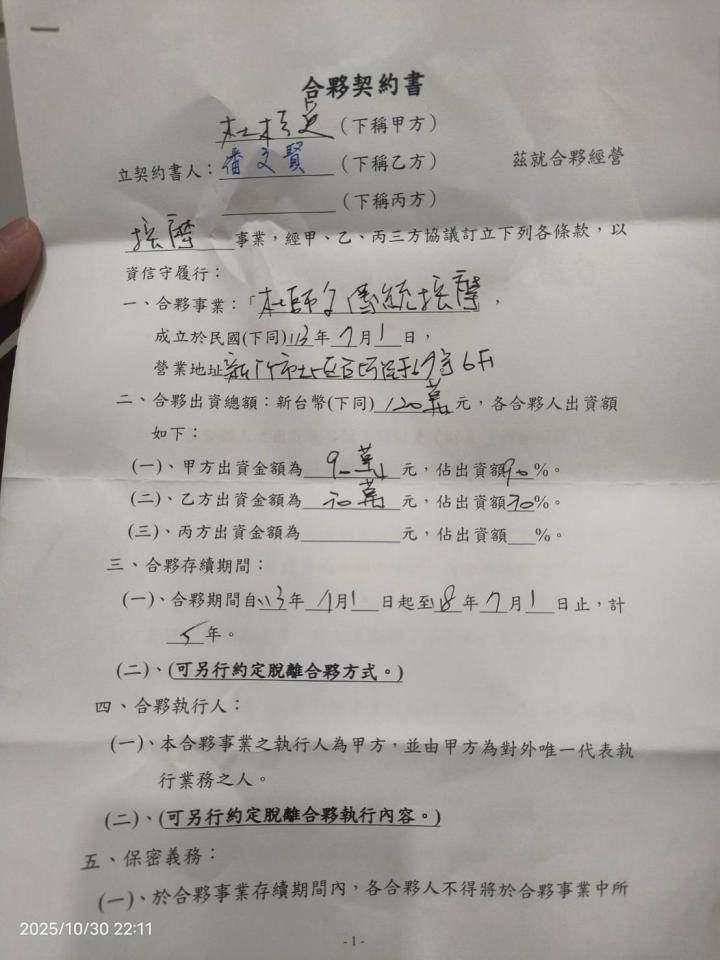 合夥契約書
杜 (下稱甲方)
立契約書人：潘文賢 (下稱乙方) 茲就合夥經營
(下稱丙方)
按摩 事業，經甲、乙、丙三方協議訂立下列各條款，以
資信守履行：
一、合夥事業：「杜師父傳統按摩，
成立於民國(下同)113年 7月1日，
營業地址新竹市 6F
二、合夥出資總額：新台幣(下同)120萬元，各合夥人出資額
如下：
(一)、甲方出資金額為 90萬 元，佔出資額90%。
(二)、乙方出資金額為 30萬 元，佔出資額30%。
(三)、丙方出資金額為 元，佔出資額 %。
三、合夥存續期間：
(一)、合夥期間自113年 7月1日起至18年7月1日止，計
5年。
(二)、(可另行約定脫離合夥方式。)
四、合夥執行人：
(一)、本合夥事業之執行人為甲方，並由甲方為對外唯一代表執
行業務之人。
(二)、(可另行約定脫離合夥執行內容。)
五、保密義務：
(一)、於合夥事業存續期間內，各合夥人不得將於合夥事業中所
2025/10/30 22:11
- 1 -